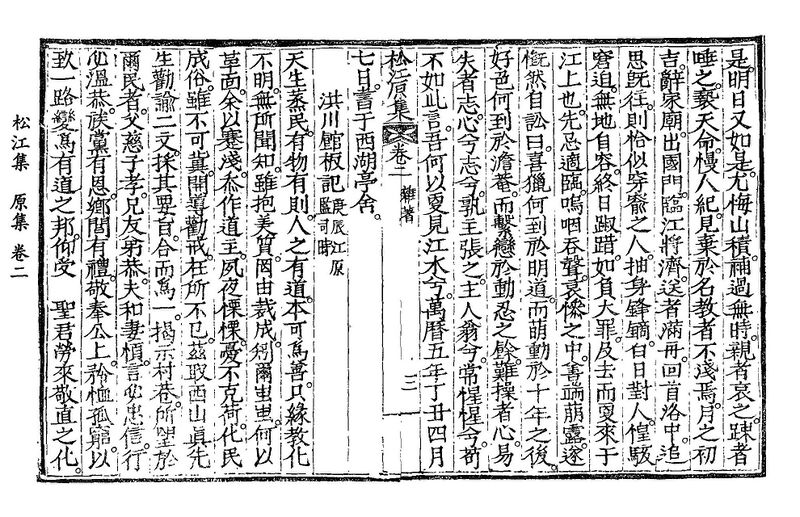 是明日又如是尤悔山積補過無時親者哀之踈者
唾之褻天命慢人紀見棄於名教者不淺焉月之初
吉辭家廟出國門臨江將濟送者滿舟回首洛中追
思旣往則恰似穿窬之人抽身鋒鏑白日對人惶駭
窘迫無地自容終日踧踖如負大罪及去而更來于
江上也先忌適臨嗚咽呑聲哀慘之中善端萌露遂
慨然自訟曰喜獵何到於明道而萌動於十年之後
好色何到於澹菴而繫戀於動忍之餘難操者心易
失者志心兮志兮孰主張之主人翁兮常惺惺兮苟
不如此言吾何以更見江水兮萬曆五年丁丑四月
松江原集 卷二 雜著 三
七日書于西湖亭舍
洪川館板記 庚辰江原監司時
天生蒸民有物有則人之有道本可爲善只緣敎化
不明無所聞知雖抱美質罔由裁成矧爾蚩蚩何以
革面余以蹇淺忝作道主夙夜慄慄憂不克荷化民
成俗雖不可冀開導勸戒在所不已茲取西山眞先
生勸諭二文採其要旨合而爲一揭示村巷所望於
爾民者父慈子孝兄友弟恭夫和妻順言必忠信行
必溫恭族黨有恩鄕閭有禮敬奉公上矜恤孤窮以
致一路變爲有道之邦仰受 聖君勞來敬直之化
松江集 原集 卷二